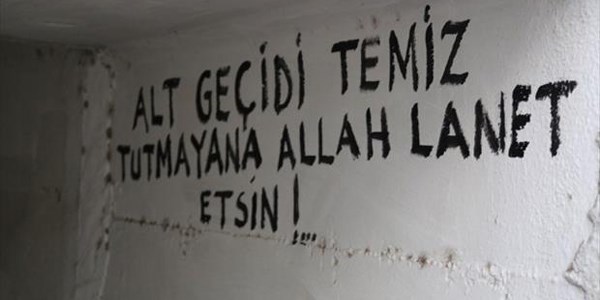 ALT GEÇİDİ TEMİZ
TUTMAYANA ALLAH LANET
ETSİN !...